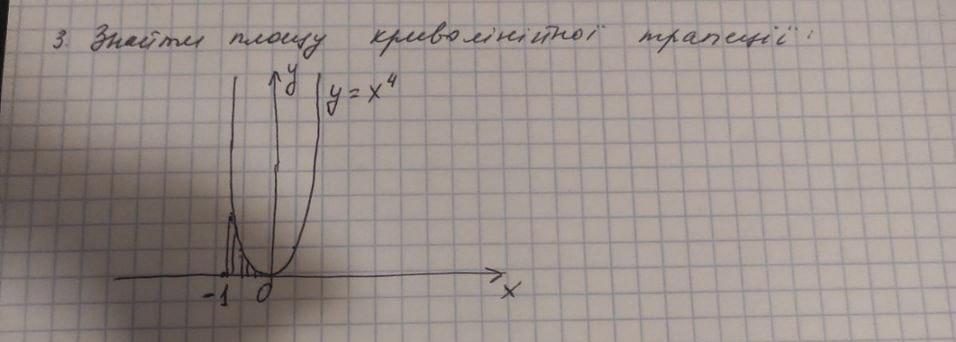 3. Знайти площу криволінійної трапеції:
y
y = x⁴
-1 0 x